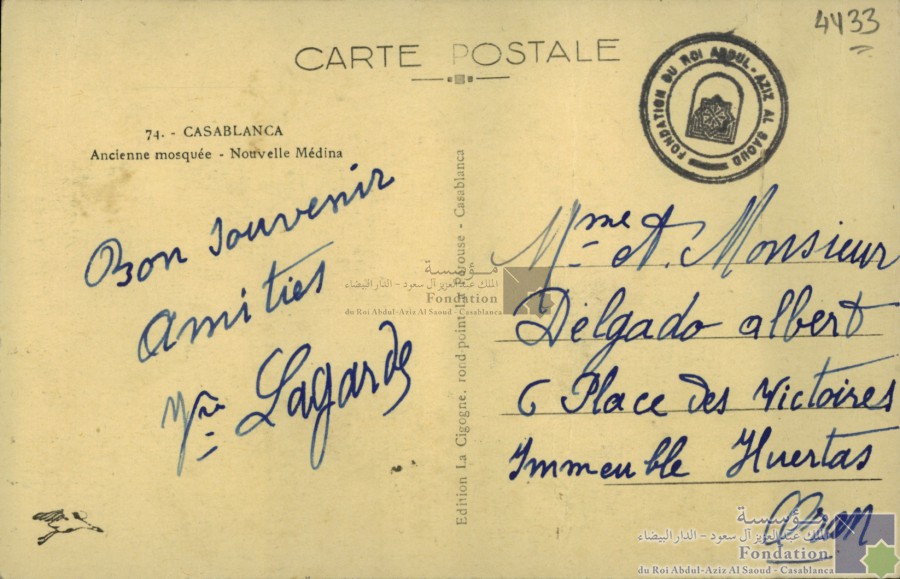 4433
CARTE POSTALE
FONDATION DU ROI ABDUL-AZIZ AL SAOUD
74. - CASABLANCA
Ancienne mosquée - Nouvelle Médina
Bon souvenir
Amitiés
Lagarde
Edition La Cigogne, rond-point la Pérouse - Casablanca
Mme A. Monsieur
Délgado albert
6 Place des Victoires
Immeuble Huertas
Oran
مؤسسة
الملك عبد العزيز آل سعود - الدار البيضاء
Fondation
du Roi Abdul-Aziz Al Saoud - Casablanca
مؤسسة
الملك عبد العزيز آل سعود - الدار البيضاء
Fondation
du Roi Abdul-Aziz Al Saoud - Casablanca